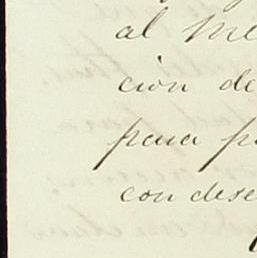 al Me
cion de
para p
con dese